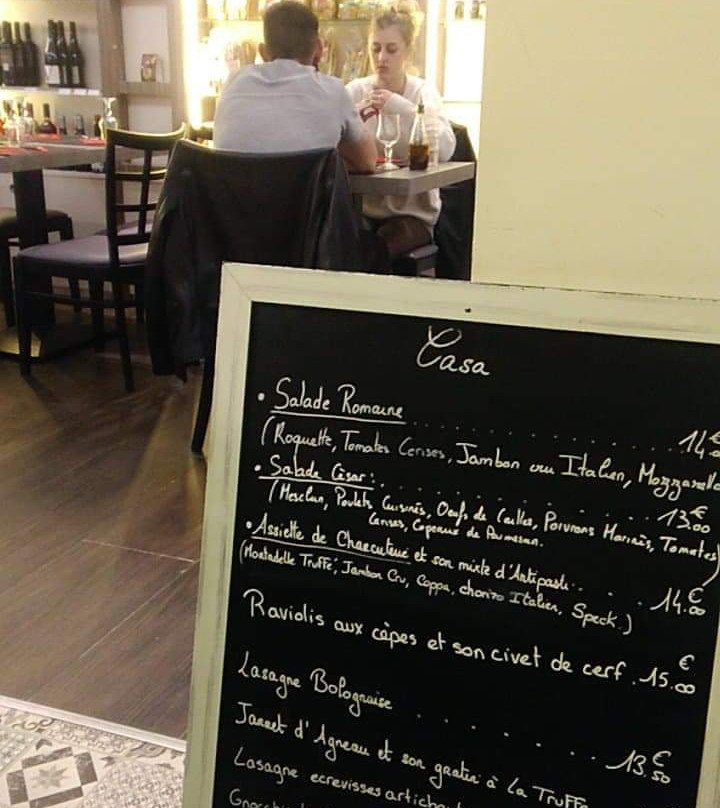 Casa
• Salade Romaine .......... 14€
(Roquette, Tomates Cerises, Jambon cru Italien, Mozzarella
• Salade César: .......... 13€00
(Mesclun, Poulets Cuisinés, Oeufs de Cailles, Poivrons Marinés, Tomates
Cerises, Copeaux de Parmesan.
• Assiette de Charcuterie et son mixte d'Antipasti: .... 14€00
(Mortadelle Truffé, Jambon Cru, Coppa, chorizo Italien, Speck.)
Raviolis aux cèpes et son civet de cerf. 15€00
Lasagne Bolognaise .......... 13€50
Jarret d'Agneau et son gratin à la Truffe
Lasagne ecrevisses